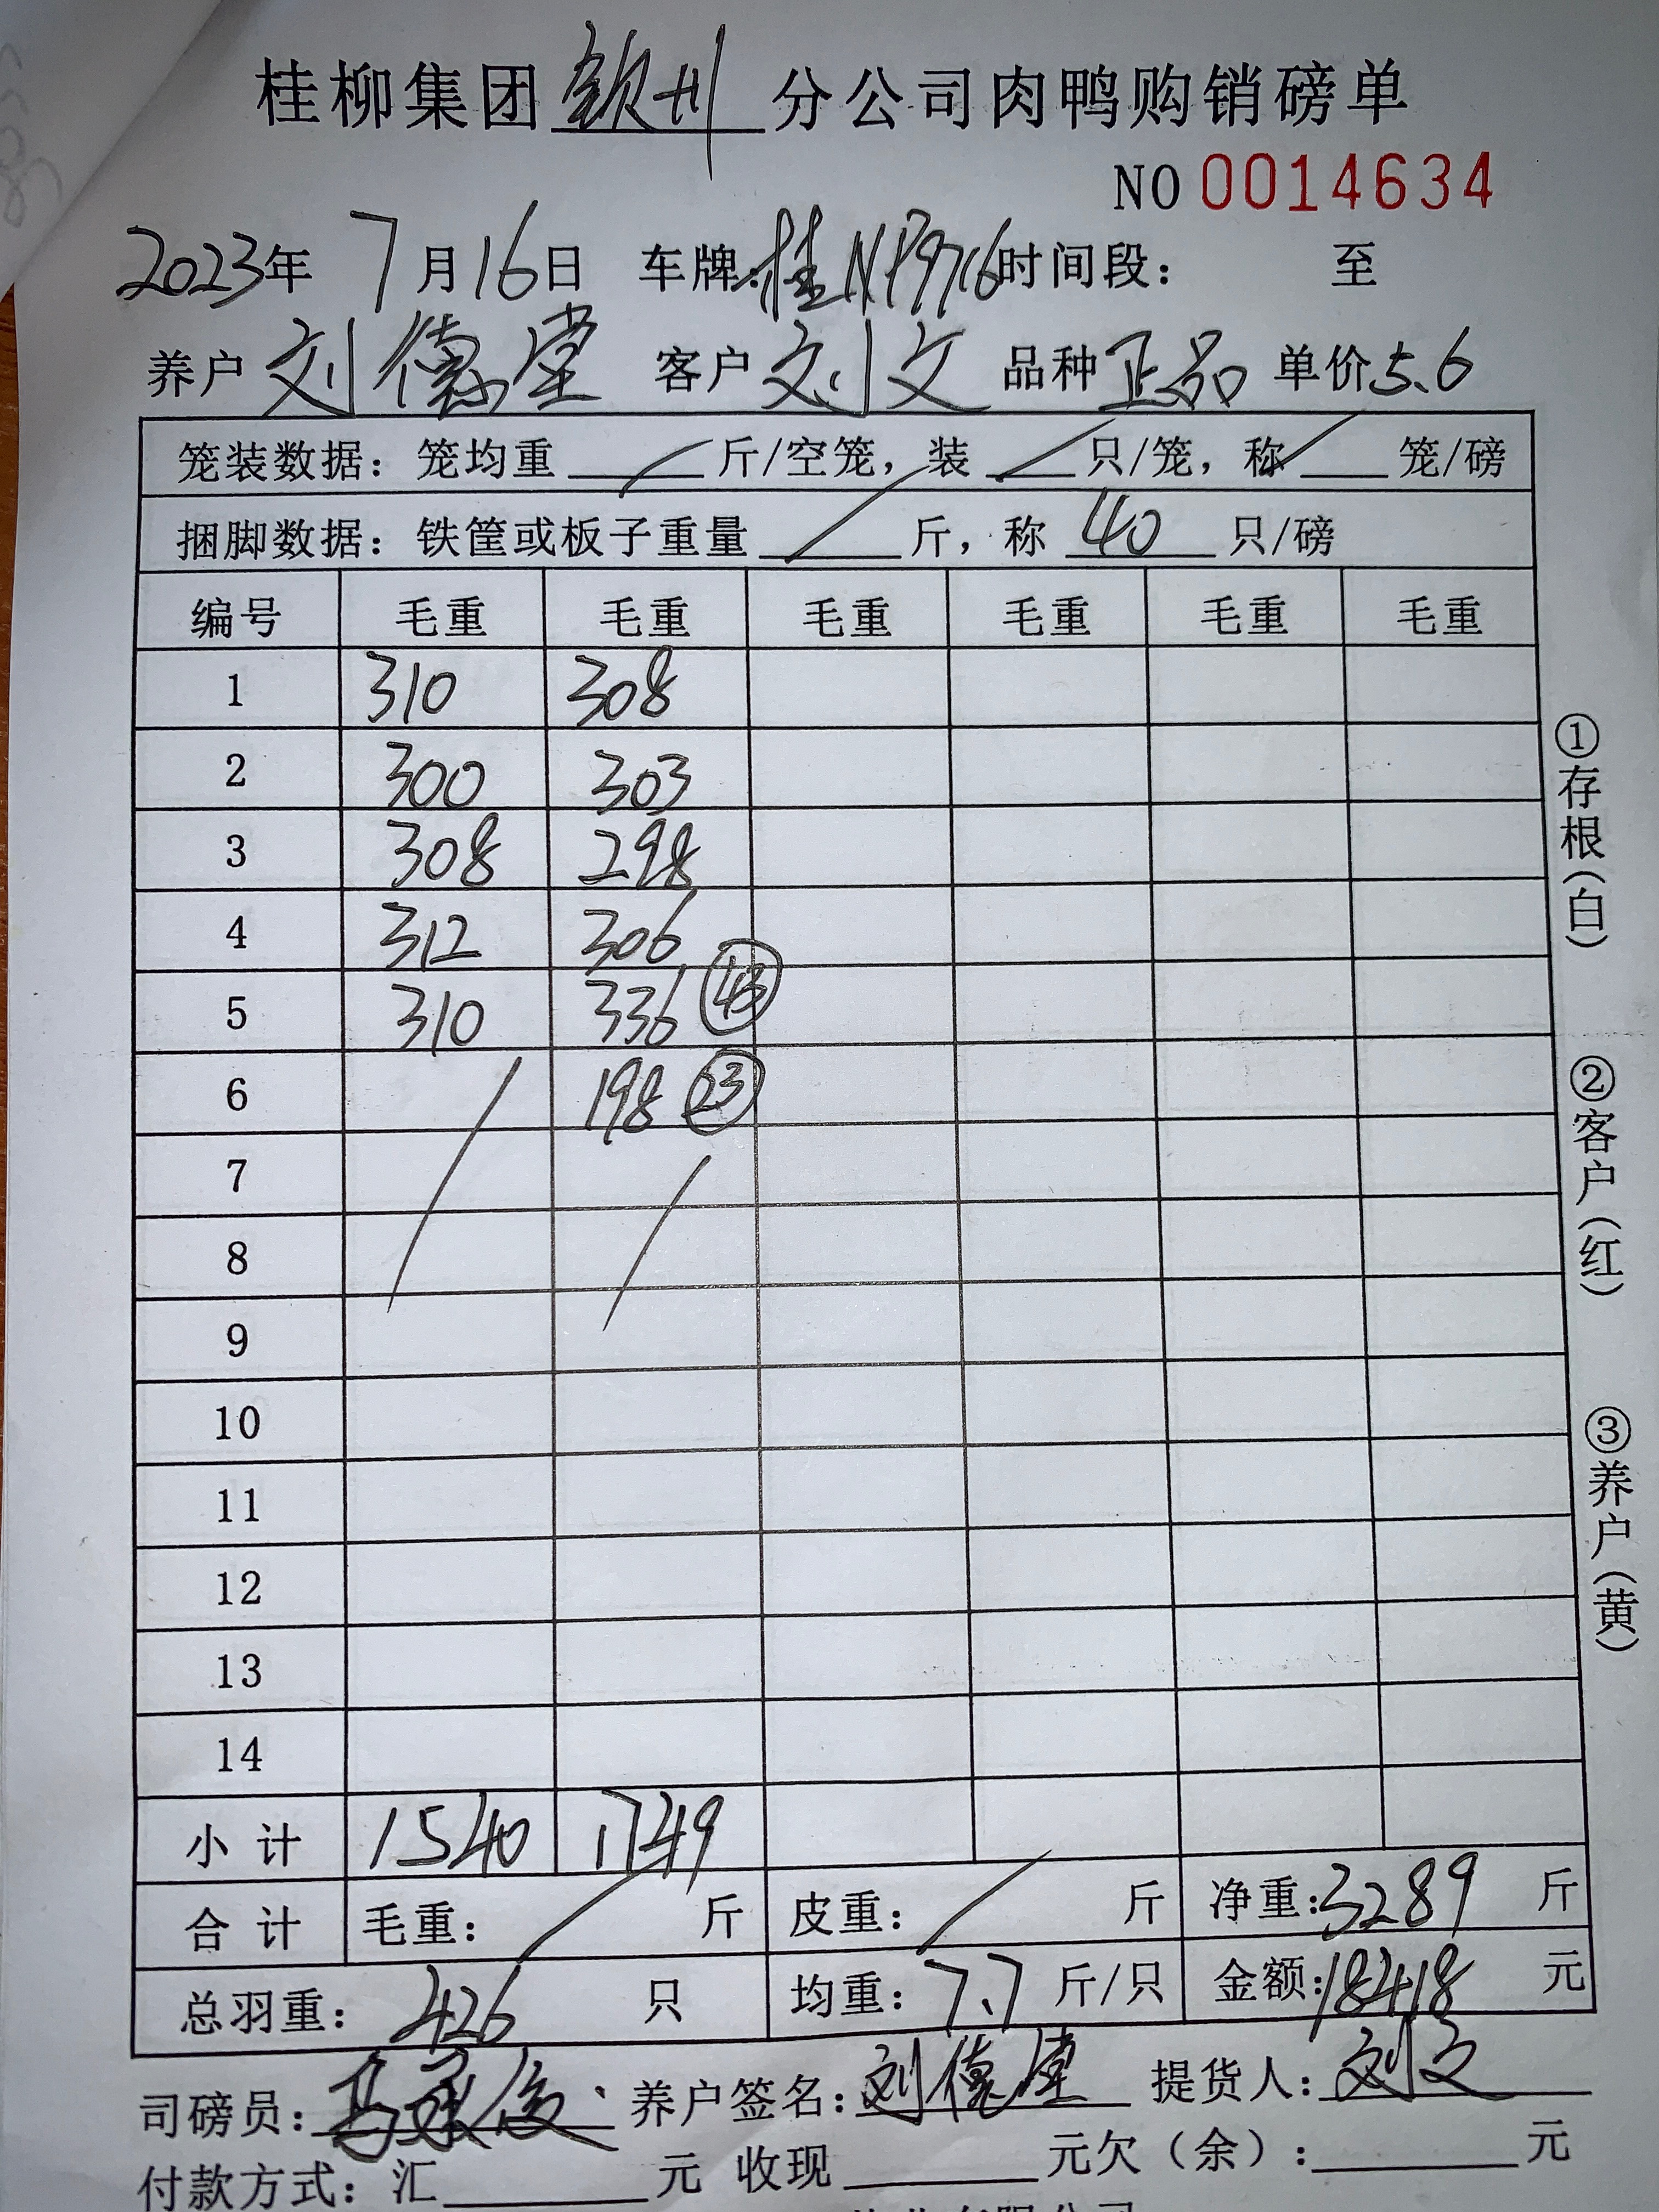 桂柳集团钦州分公司肉鸭购销磅单
NO 0014634
2023年 7月16日 车牌:桂NP9716时间段: 至
养户 刘德堂 客户 刘文 品种 正品 单价5.6
笼装数据: 笼均重 / 斤/空笼, 装 / 只/笼, 称 / 笼/磅
捆脚数据: 铁筐或板子重量 / 斤, 称 40 只/磅
编号 毛重 毛重 毛重 毛重 毛重 毛重
1 310 308
2 300 303
3 308 298
4 312 306
5 310 336 ㊸
6 / 198 ㉓
7 /
8
9
10
11
12
13
14
小计 1540 1749
合计 毛重: / 斤 皮重: / 斤 净重:3289 斤
总羽重: 426 只 均重: 7.7 斤/只 金额:18418 元
司磅员: 养户签名:刘德堂 提货人:刘文
付款方式: 汇 元 收现 元欠(余): 元
①存根(白)
②客户(红)
③养户(黄)